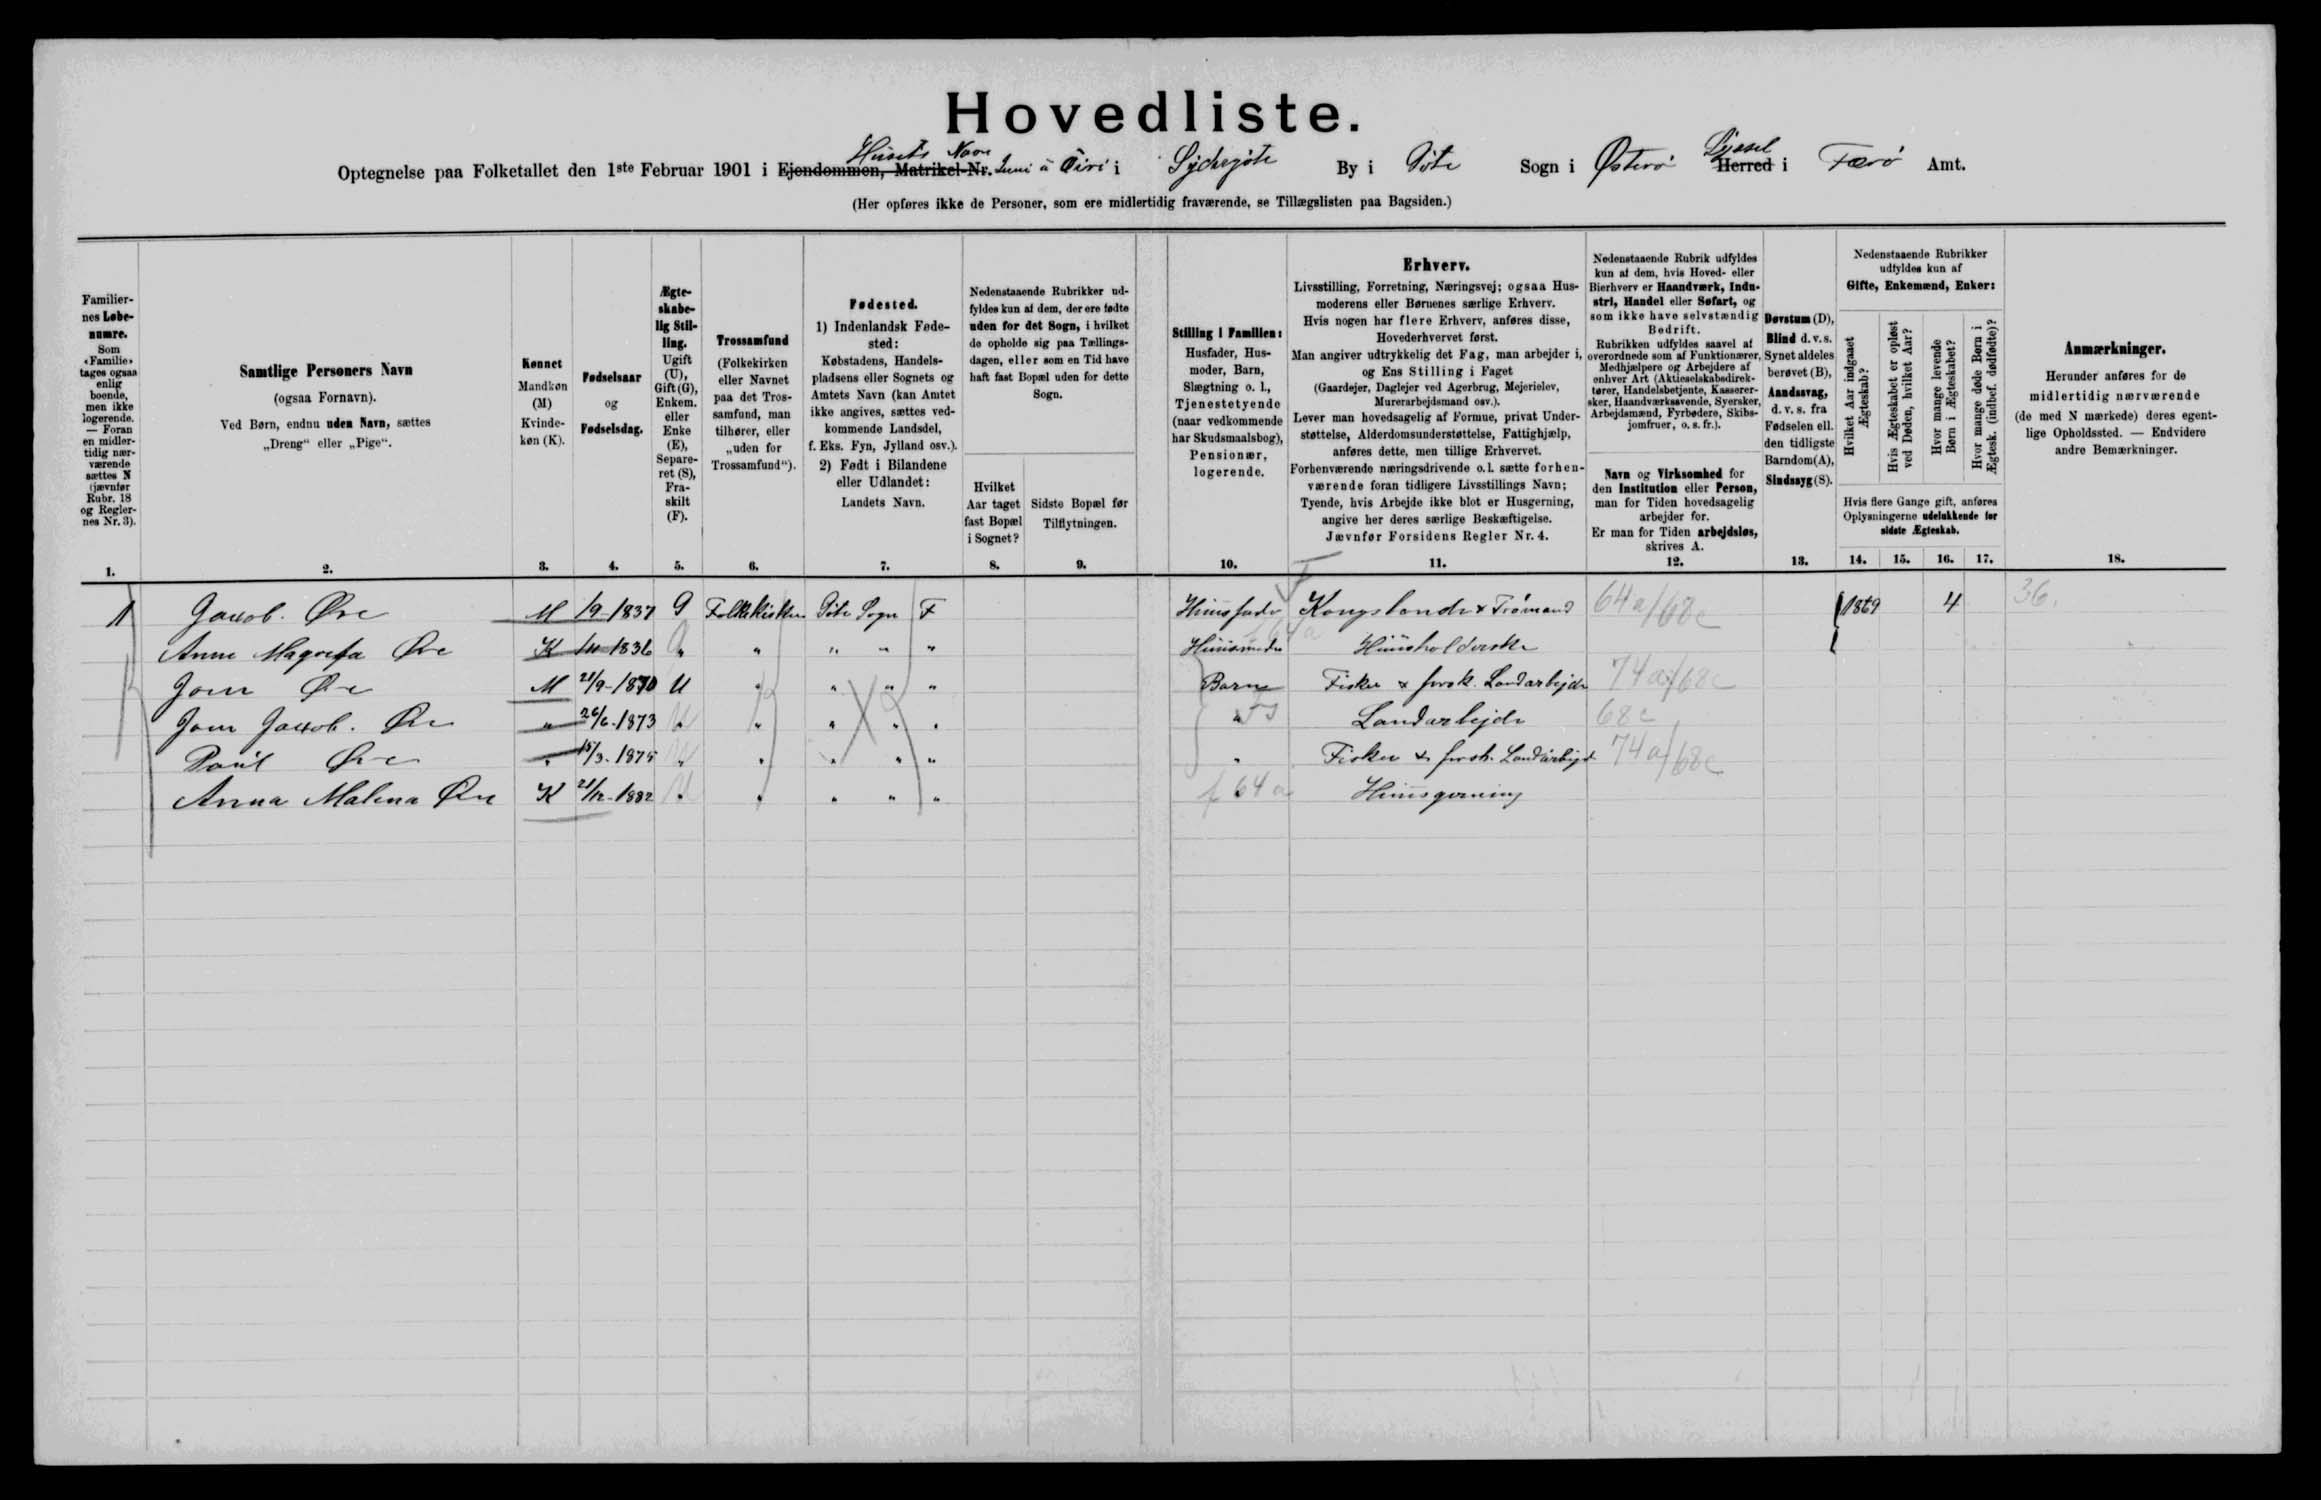 Hovedliste.
Husets Navn
Optegnelse paa Folketallet den 1ste Februar 1901 i Ejendommen, Matrikel-Nr. Inni i Øiri i Sydregøte By i Gøte Sogn i Østerø Syssel Herred i Færø Amt.
(Her opføres ikke de Personer, som ere midlertidig fraværende, se Tillægslisten paa Bagsiden.)
Familiernes Løbenumre.
Som «Familie» tages ogsaa enlig boende, men ikke logerende. — Foran en midlertidig nærværende sættes N (jævnfør Rubr. 18 og Reglernes Nr. 3).
1.
Samtlige Personers Navn
(ogsaa Fornavn).
Ved Børn, endnu uden Navn, sættes
„Dreng" eller „Pige".
2.
Kønnet
Mandkøn
(M)
Kvinde-
køn (K).
3.
Fødselsaar
og
Fødselsdag.
4.
Ægte-
skabe-
lig Stil-
ling.
Ugift
(U),
Gift (G),
Enkem.
eller
Enke
(E),
Separe-
ret (S),
Fra-
skilt
(F).
5.
Trossamfund
(Folkekirken
eller Navnet
paa det Tros-
samfund, man
tilhører, eller
„uden for
Trossamfund").
6.
Fødested.
1) Indenlandsk Føde-
sted:
Købstadens, Handels-
pladsens eller Sognets og
Amtets Navn (kan Amtet
ikke angives, sættes ved-
kommende Landsdel,
f. Eks. Fyn, Jylland osv.).
2) Født i Bilandene
eller Udlandet:
Landets Navn.
7.
Nedenstaaende Rubrikker ud-
fyldes kun af dem, der ere fødte
uden for det Sogn, i hvilket
de opholde sig paa Tællings-
dagen, eller som en Tid have
haft fast Bopæl uden for dette
Sogn.
Hvilket
Aar taget
fast Bopæl
i Sognet?
8.
Sidste Bopæl før
Tilflytningen.
9.
Stilling i Familien:
Husfader, Hus-
moder, Barn,
Slægtning o. l.,
Tjenestetyende
(naar vedkommende
har Skudsmaalsbog),
Pensionær,
logerende.
10.
Erhverv.
Livsstilling, Forretning, Næringsvej; ogsaa Hus-
moderens eller Børnenes særlige Erhverv.
Hvis nogen har flere Erhverv, anføres disse,
Hovederhvervet først.
Man angiver udtrykkelig det Fag, man arbejder i,
og Ens Stilling i Faget
(Gaardejer, Daglejer ved Agerbrug, Mejerielev,
Murerarbejdsmand osv.).
Lever man hovedsagelig af Formue, privat Under-
støttelse, Alderdomsunderstøttelse, Fattighjælp,
anføres dette, men tillige Erhvervet.
Forhenværende næringsdrivende o.l. sætte forhen-
værende foran tidligere Livsstillings Navn;
Tyende, hvis Arbejde ikke blot er Husgerning,
angive her deres særlige Beskæftigelse.
Jævnfør Forsidens Regler Nr. 4.
11.
Nedenstaaende Rubrik udfyldes
kun af dem, hvis Hoved- eller
Bierhverv er Haandværk, Indu-
stri, Handel eller Søfart, og
som ikke have selvstændig
Bedrift.
Rubrikken udfyldes saavel af
overordnede som af Funktionærer,
Medhjælpere og Arbejdere af
enhver Art (Aktieselskabsdirek-
tører, Handelsbetjente, Kasserer-
sker, Haandværkssvende, Syersker,
Arbejdsmænd, Fyrbødere, Skibs-
jomfruer, o. s. fr.).
Navn og Virksomhed for
den Institution eller Person,
man for Tiden hovedsagelig
arbejder for.
Er man for Tiden arbejdsløs,
skrives A.
12.
Døvstum (D),
Blind d. v. s.
Synet aldeles
berøvet (B),
Aandssvag,
d. v. s. fra
Fødselen ell.
den tidligste
Barndom (A),
Sindssyg (S).
13.
Nedenstaaende Rubrikker
udfyldes kun af
Gifte, Enkemænd, Enker:
Hvilket Aar indgaaet Ægteskab?
Hvis Ægteskabet er opløst ved Døden, hvilket Aar?
Hvor mange levende Børn i Ægteskabet?
Hvor mange døde Børn i Ægtesk. (indbef. dødfødte)?
Hvis flere Gange gift, anføres
Oplysningerne udelukkende for
sidste Ægteskab.
14. 15. 16. 17.
Anmærkninger.
Herunder anføres for de
midlertidig nærværende
(de med N mærkede) deres egent-
lige Opholdssted. — Endvidere
andre Bemærkninger.
18.
1 Jacob. Øre M 1/9-1837 G Folkekirken Gøte Sogn F Huusfader Kongsbonde & Trømand 64a/68c 1869 4 36.
Anne Magrefa Øre K 1/11 1836 " " " " " Huusmoder f 64a Huusholderske
Joen Øre M 21/9-1870 U " " " " Barn Fisker & forsk. Landarbejde 74a/68c
Joen Jacob. Øre " 26/6-1873 " " " " " " FJ Landarbejde 68c
Poul Øre " 15/3-1875 " " " " " " Fisker & forsk. Landarbejd 74a/68c
Anna Malena Øre K 21/12-1882 " " " " " f 64a Huusgerning